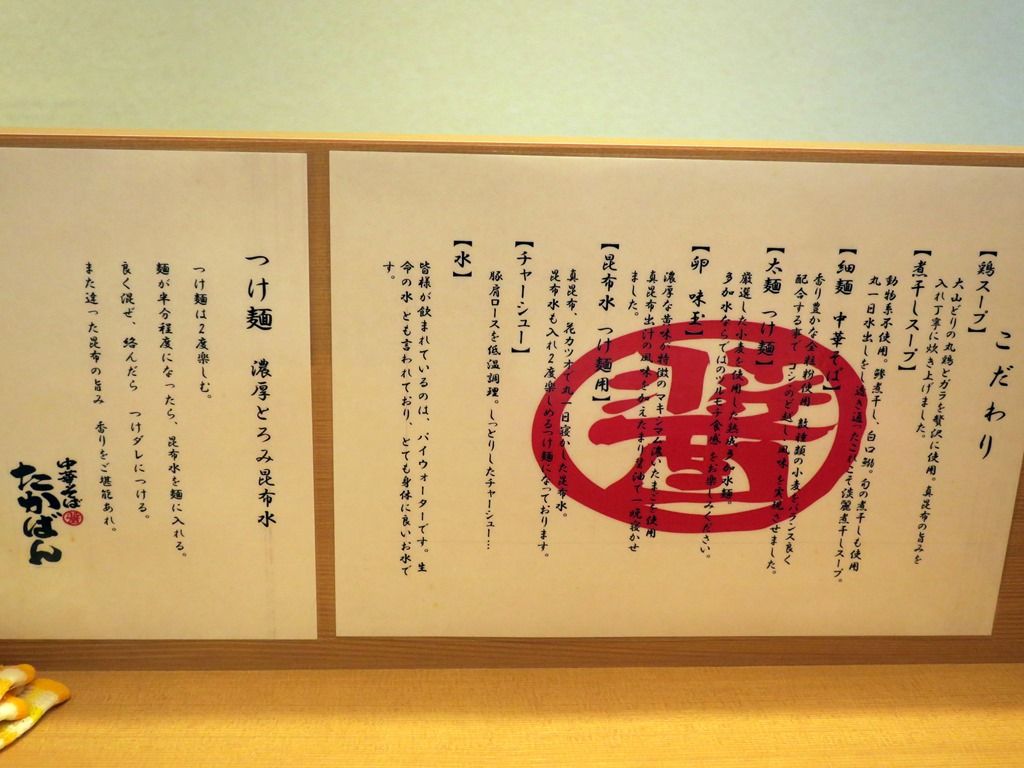 こだわり
【鶏スープ】
大山どりの丸鶏とガラを贅沢に使用。真昆布の旨みを
入れ丁寧に炊き上げました。
【煮干しスープ】
動物系不使用。鯵煮干し、白口鰯。旬の煮干しも使用
丸一日水出しを し 透き通ったこだわこそ淡麗煮干しスープ。
【細麺 中華そば】
香り豊かな全粒粉使用 数種類の小麦をバランス良く
配合する事で コシ のど越し 風味 を実現させました。
【太麺 つけ麺】
厳選した小麦を使用した熟成多加水麺。
多加水ならではのツルモチ食感 をお楽しみください。
【卵 味玉】
濃厚な黄味が特徴のマキシマム濃いたまごを使用
真昆布出汁の風味を加えたまり醤油で一晩寝かせ
ました。
【昆布水 つけ麺用】
真昆布、花カツオで丸一日寝かした昆布水。
昆布水も入れ2度楽しめるつけ麺になっております。
【チャーシュー】
豚肩ロースを低温調理。しっとりしたチャーシュー…
【水】
皆様が飲まれているのは、パイウォーターです。生
命の水 とも言われており、とても身体に良いお水で
す。
つけ麺 濃厚とろみ昆布水
つけ麺は2度楽しむ。
麺が半分程度になったら、昆布水を麺に入れる。
良く混ぜ、絡んだら つけダレにつける。
また違った昆布の旨み 香りをご堪能あれ。
中華そば
たかばん